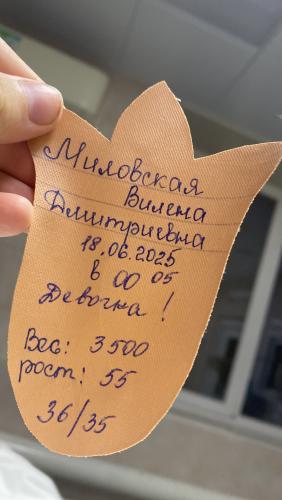 Миловская
Вилена
Дмитриевна
18.06.2025
в 00 05
Девочка!
Вес: 3500
рост: 55
36/35